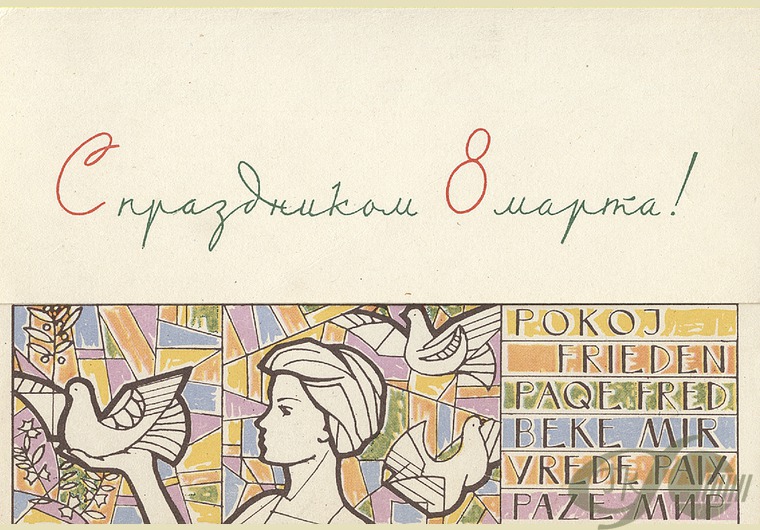 С праздником 8 марта!
POKOJ
FRIEDEN
PAQE FRED
BEKE MIR
VREDE PAIX
PAZE МИР